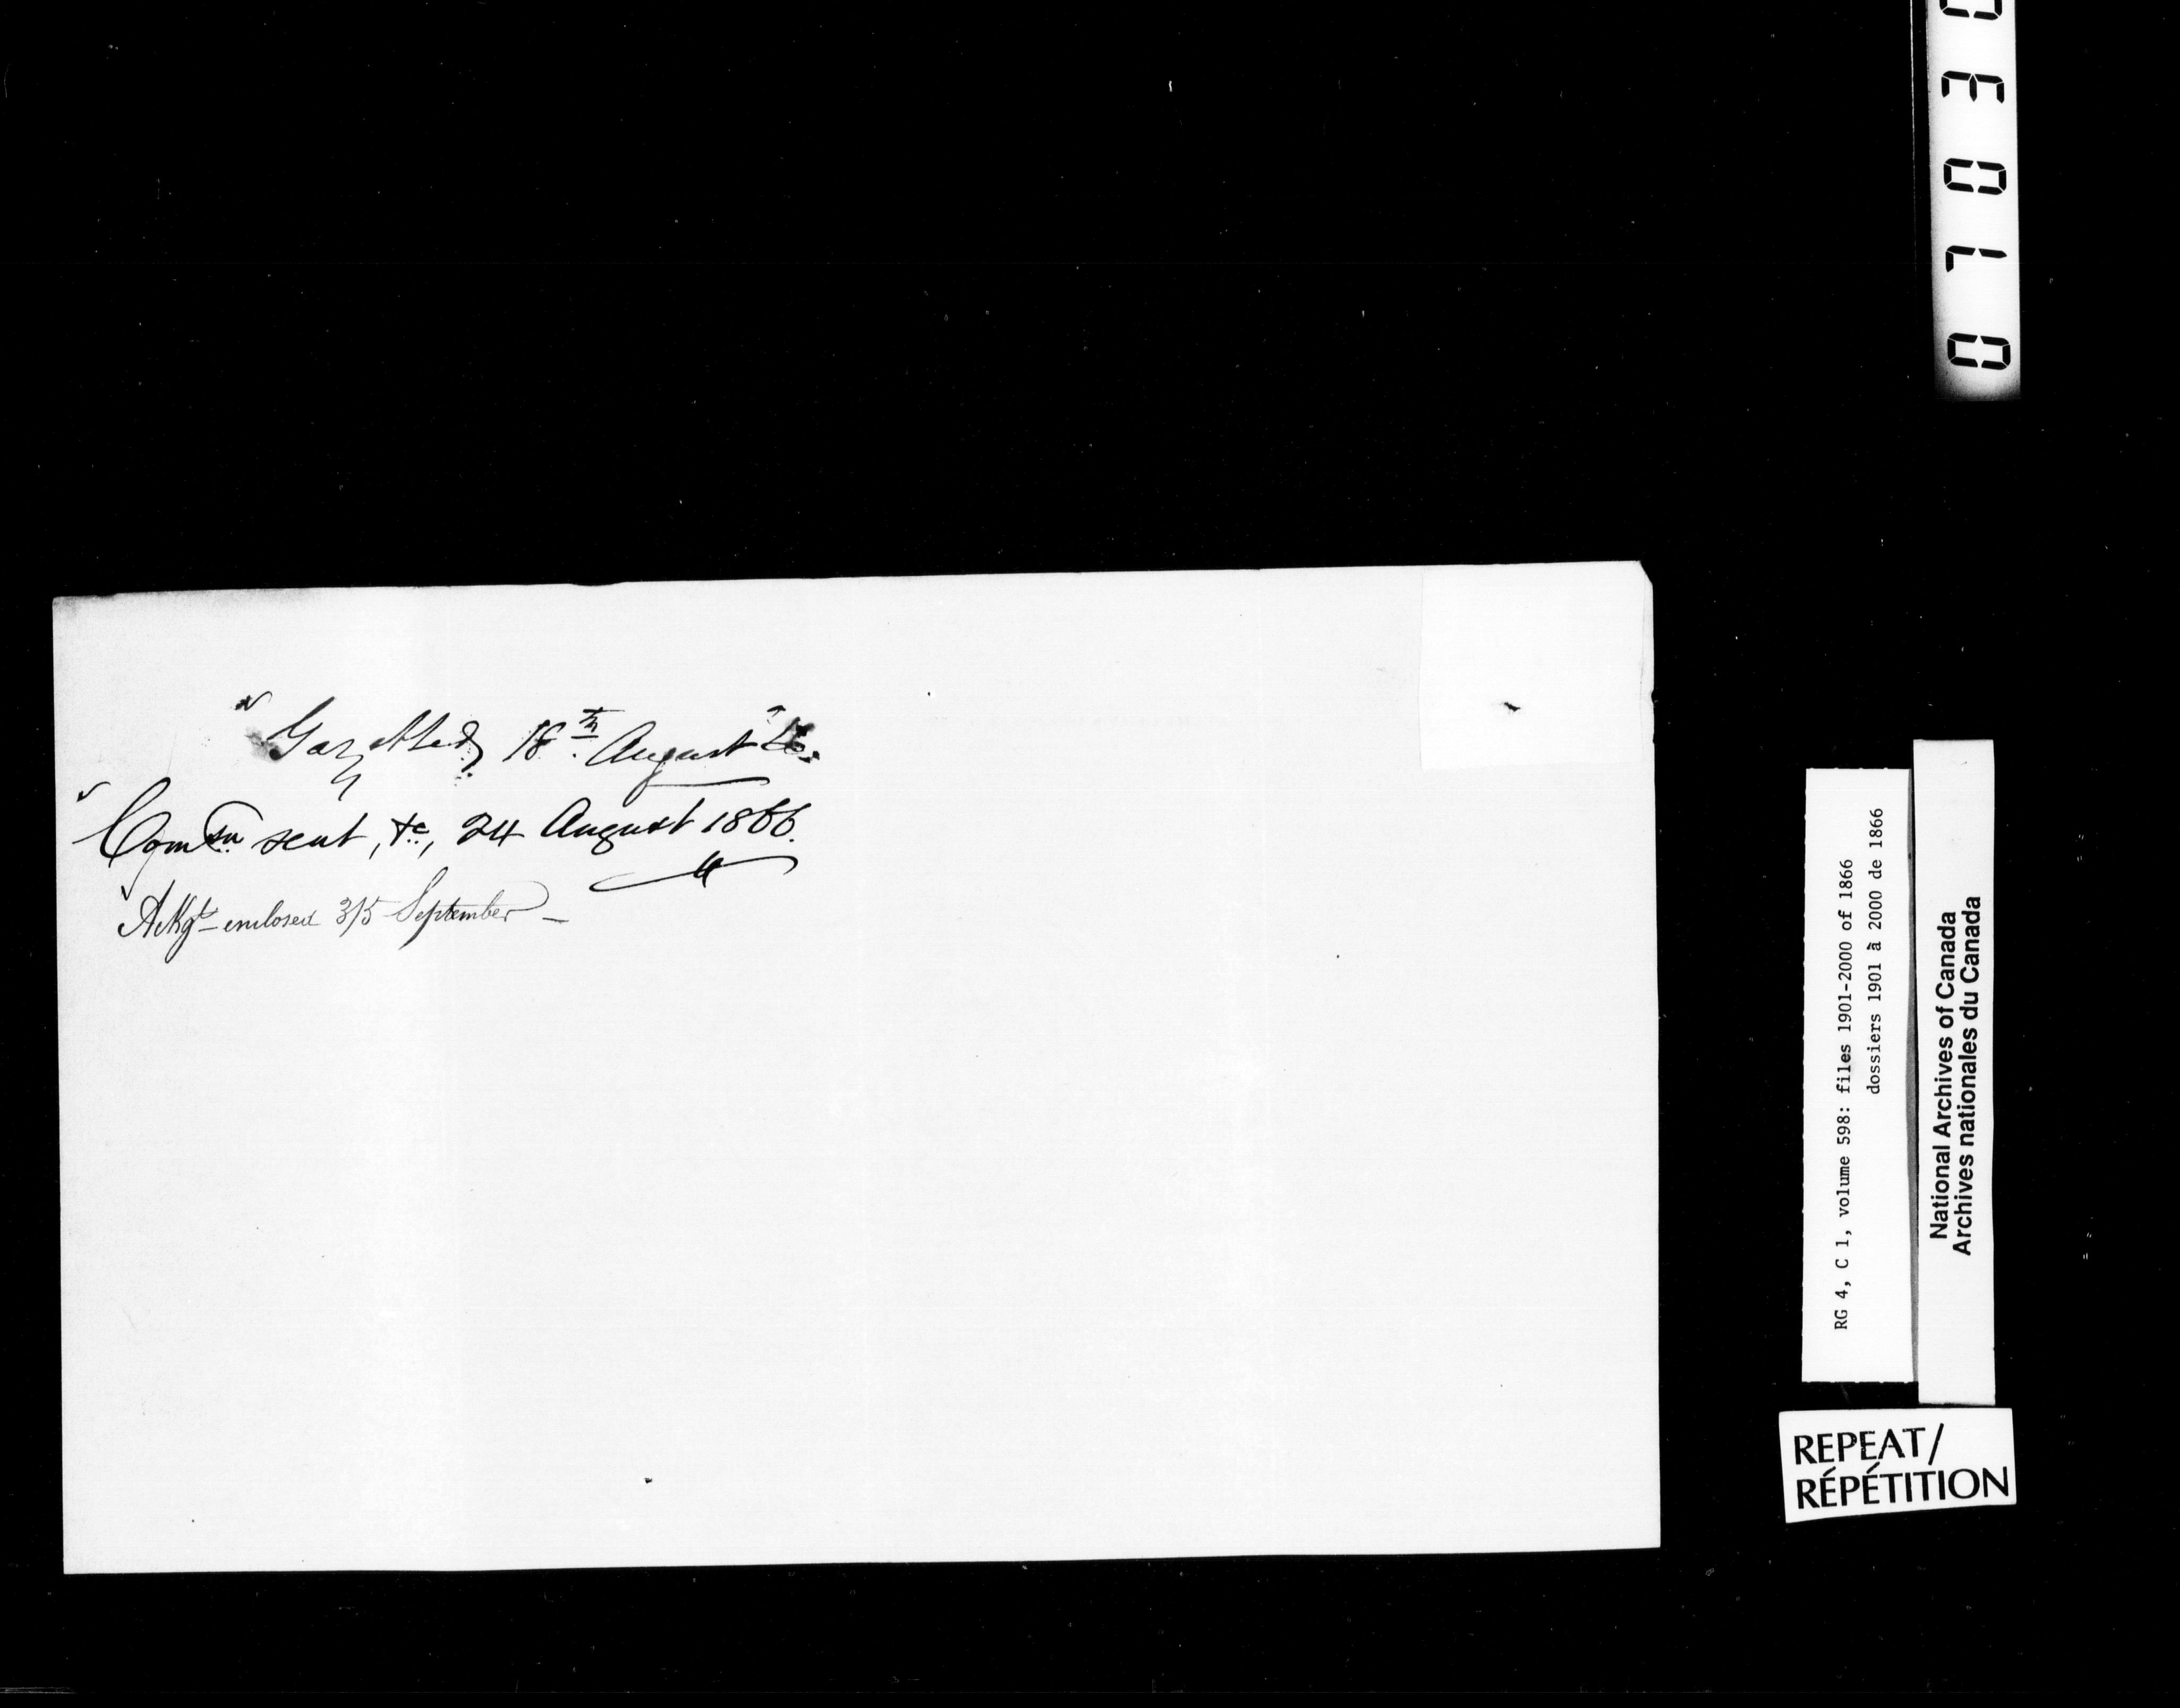 Gazetted 18th August
Comsn sent, &c, 24 August 1866.
Ackgt enclosed 3/5 September
RG 4, C 1, volume 598: files 1901-2000 of 1866
dossiers 1901 à 2000 de 1866
National Archives of Canada
Archives nationales du Canada
REPEAT/
RÉPÉTITION